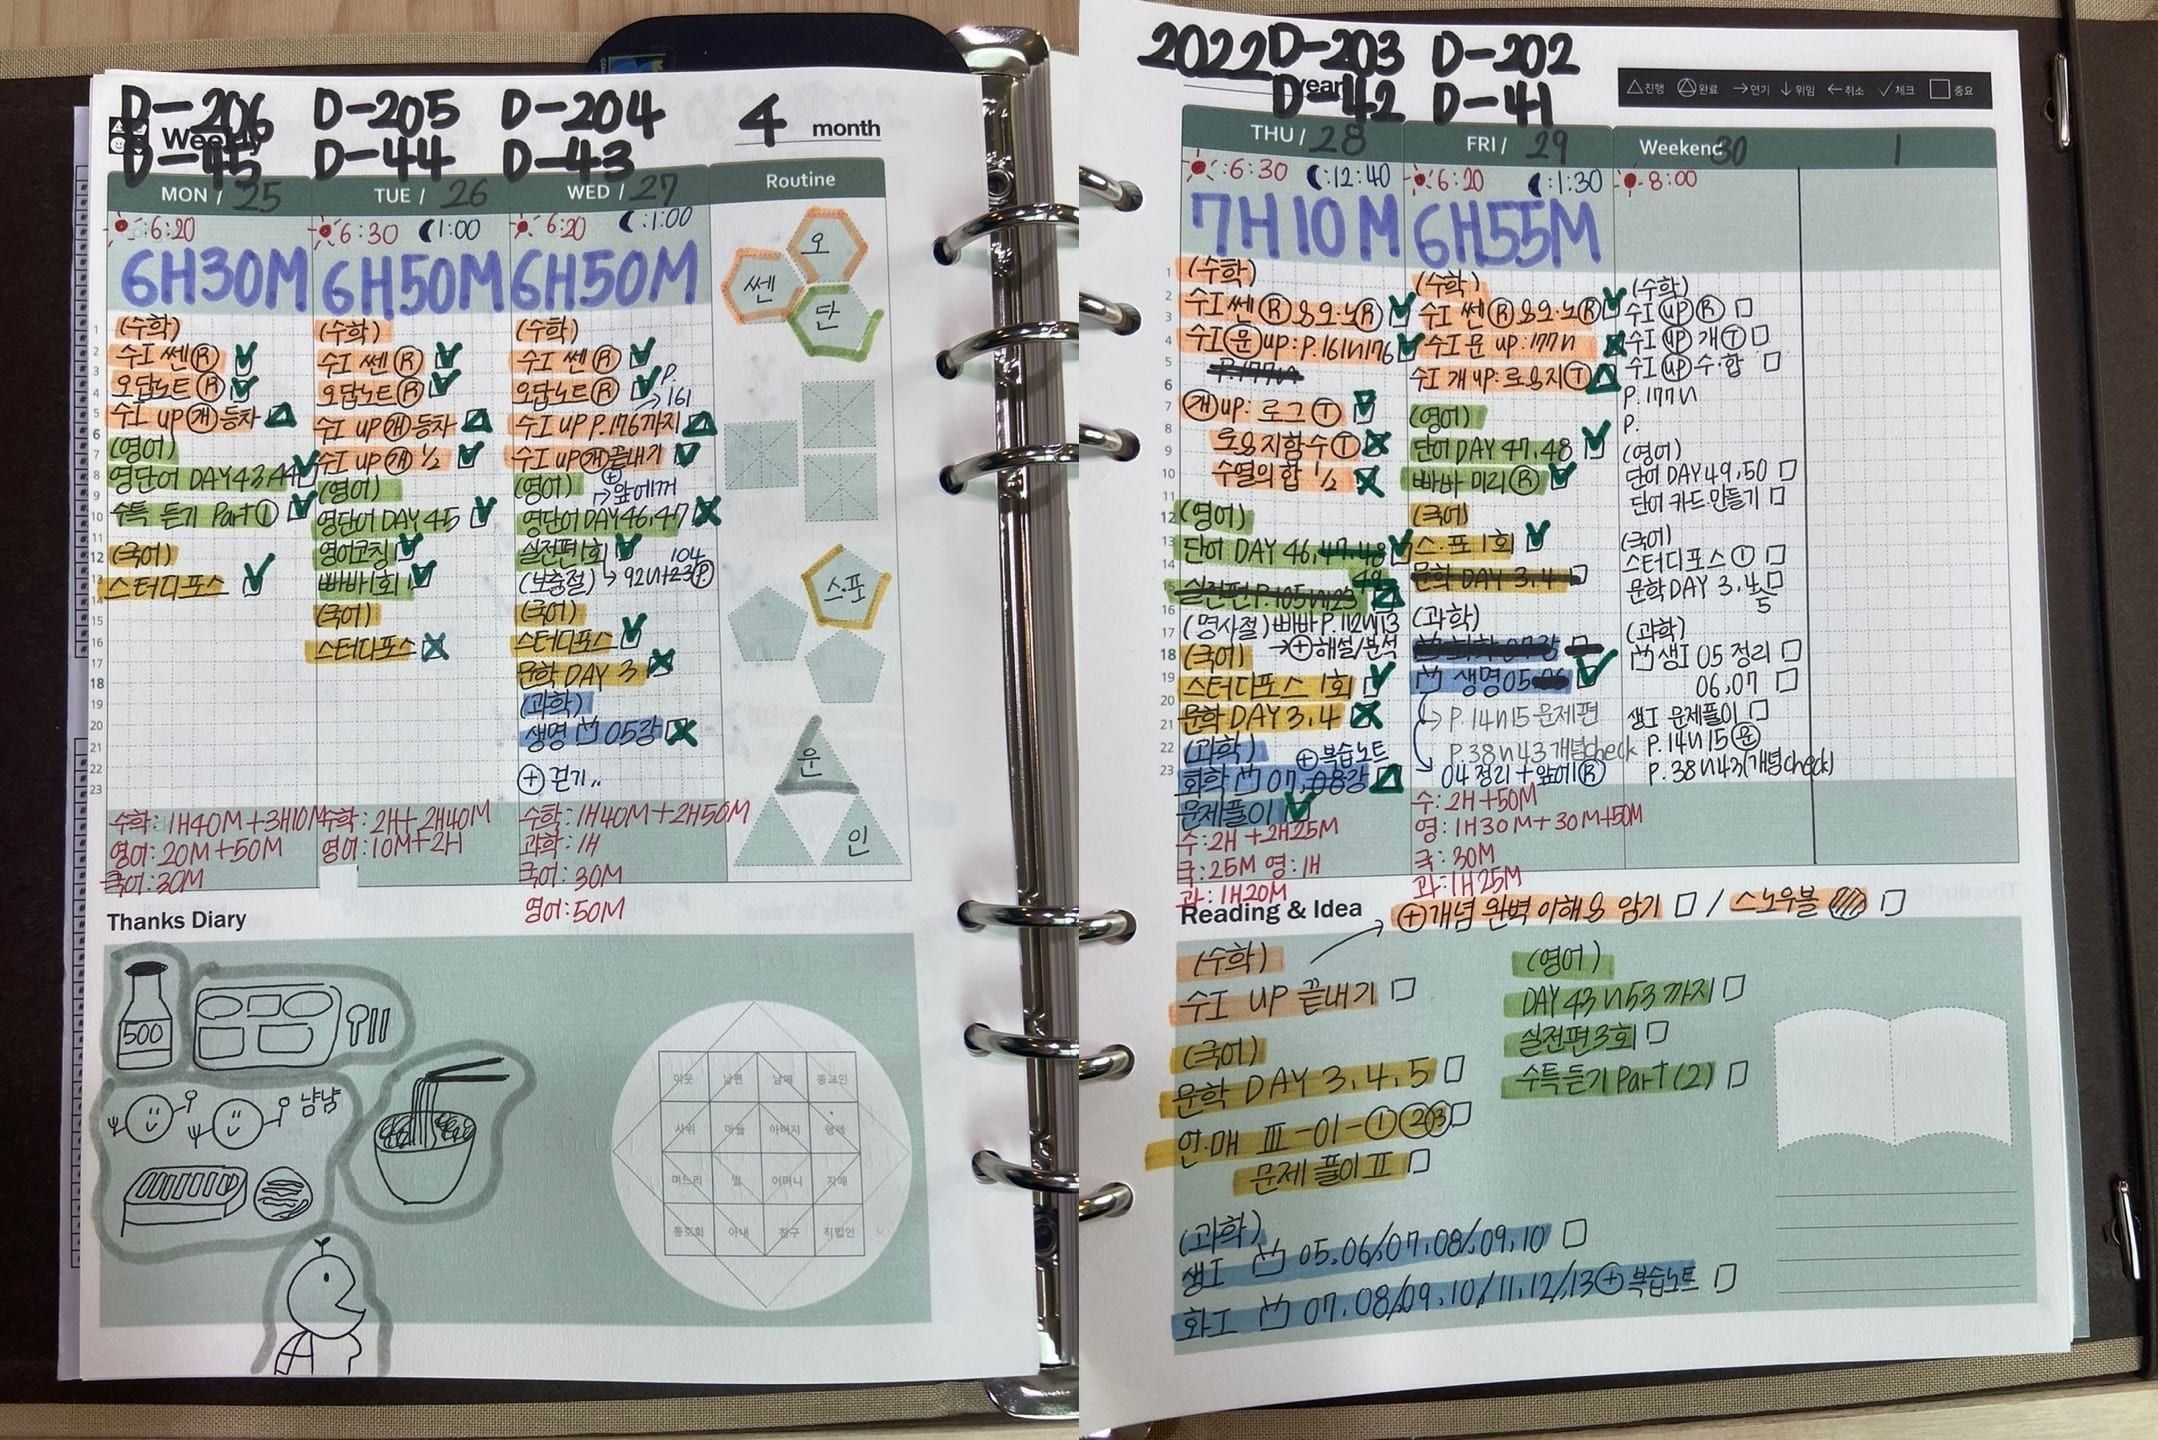 D-206 D-205 D-204
D-45 D-44 D-43
Weekly
4 month
MON / 25
6:20
6H30M
(수학)
수I 쎈 Ⓡ
오답노트 Ⓡ
수I up 개 등차
(영어)
영단어 DAY43,44
수특 듣기 Part ①
(국어)
스터디포스
수학: 1H40M+3H10M
영어: 20M+50M
국어: 30M
TUE / 26
6:30 1:00
6H50M
(수학)
수I 쎈 Ⓡ
오답노트 Ⓡ
수I up 개 등차
수I up 개 1/2
(영어)
영단어 DAY45
영어코칭
빠바 1회
(국어)
스터디포스
수학: 2H+2H40M
영어: 10M+2H
WED / 27
6:20 1:00
6H50M
(수학)
수I 쎈 Ⓡ
오답노트 Ⓡ
P.161
수I up P.176까지
수I up 개 끝내기
(영어) ⊕ → 앞에꺼
영단어 DAY46,47
실전편 1회
(보충절) → 92~123 Ⓟ
104
(국어)
스터디포스
문학 DAY 3
(과학)
생명 05강
⊕ 걷기..
수학: 1H40M+2H50M
과학: 1H
국어: 30M
영어: 50M
Routine
오
쎈
단
스.포
운
인
1
2
3
4
5
6
7
8
9
10
11
12
13
14
15
16
17
18
19
20
21
22
23
Thanks Diary
500
냠냠
이웃 남편 남매 종교인
사위 아들 아버지 형제
며느리 딸 어머니 자매
동호회 아내 친구 직업인
2022 year
D-203 D-202
D-42 D-41
△진행 완료 →연기 ↓위임 ←취소 ✓체크 □중요
THU / 28
6:30 12:40
7H10M
(수학)
수I 쎈 Ⓡ & 오.노 Ⓡ
수I 문 up: P.161~176
P.177~
개 up: 로그 Ⓣ
로&지함수 Ⓣ
수열의합 1/2
(영어)
단어 DAY 46, 47, 48
49
실전편 P.105~123
(명사절) 빠바 P.112~113
→⊕해설/분석
(국어)
스터디포스 1회
문학 DAY 3,4
(과학) ⊕복습노트
화학 07, 08강
문제풀이
수: 2H+2H25M
국: 25M 영: 1H
과: 1H20M
FRI / 29
6:20 1:30
6H55M
(수학)
수I 쎈 Ⓡ & 오.노 Ⓡ
수I 문 up: 177~
수I 개 up: 로&지 Ⓣ
(영어)
단어 DAY 47,48
빠바 미리 Ⓡ
(국어)
스.포 1회
문학 DAY 3,4
(과학)
생명 05
P.14~15 문제편
P.38~43 개념check
04 정리 + 앞에 Ⓡ
수: 2H+50M
영: 1H30M+30M+50M
국: 30M
과: 1H25M
Weekend 30
8:00
(수학)
수I up Ⓡ
수I up 개 Ⓣ
수I up 수.합
P.177~
P.
(영어)
단어 DAY 49,50
단어 카드 만들기
(국어)
스터디포스 ①
문학 DAY 3,4
5
(과학)
생I 05 정리
06,07
생I 문제풀이
P.14~15 문
P.38~43(개념check)
1
Reading & Idea
⊕개념 완벽 이해&암기 / 스노우볼
(수학)
수I UP 끝내기
(국어)
문학 DAY 3,4,5
언.매 Ⅲ-01-①②③
문제 풀이 Ⅱ
(영어)
DAY 43~53 까지
실전편 3회
수특듣기 Part(2)
(과학)
생I 05,06/07,08/09,10
화I 07,08/09,10/11,12/13 ⊕복습노트